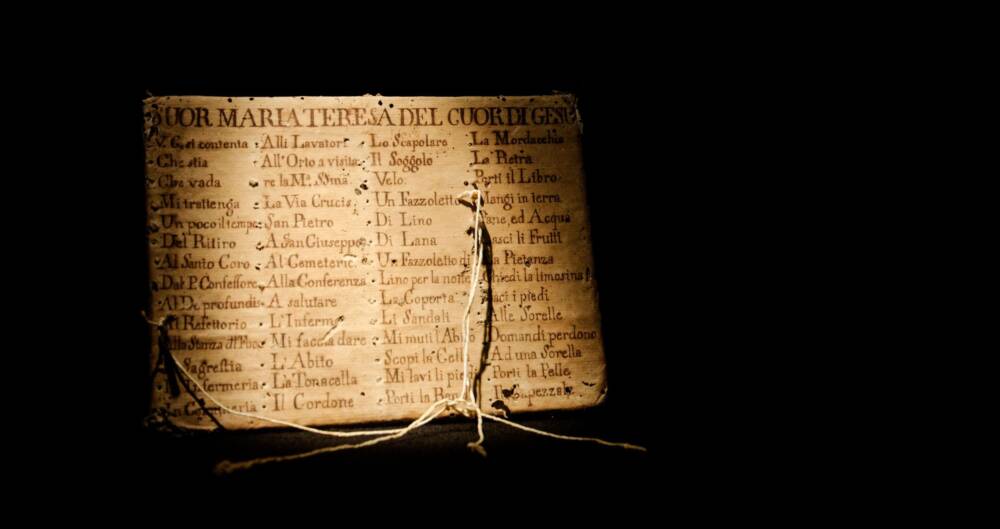 SUOR MARIA TERESA DEL CUOR DI GESU
V. C. si contenta
Che stia
Che vada
Mi trattenga
Un poco il tempo
Del Ritiro
Al Santo Coro
Dal P. Confessore
Al De profundis
Al Refettorio
Alla Stanza del
Sagrestia
Infermeria
Alli Lavatori
All'Orto a visita
re la Mª. SSma.
La Via Crucis
San Pietro
A San Giuseppe
Al Cemeterio
Alla Conferenza
A salutare
L'Inferma
Mi faccia dare
L'Abito
La Tonacella
Il Cordone
Lo Scapolare
Il Soggolo
Velo
Un Fazzoletto
Di Lino
Di Lana
Un Fazzoletto di
Lino per la notte
La Coperta
Li Sandali
Mi muti l'Abito
Scopi la Cella
Mi lavi li piedi
Porti la
La Mordacchia
La Pietra
Porti il Libro
Mangi in terra
Pane, ed Acqua
Lasci li Frutti
La Pietanza
Chiedi la limosina
Baci i piedi
Alle Sorelle
Domandi perdono
Ad una Sorella
Porti la Pelle
Il Capezzale